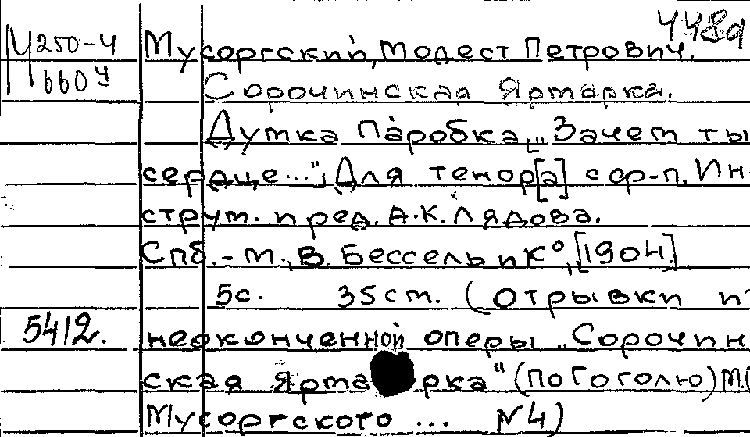 448д
М250-4
660ч
Мусоргский, Модест Петрович.
Сорочинская Ярмарка.
Думка Паробка „Зачем ты
сердце..."; Для тенор[а] с ф-п. Ин-
струм. и ред. А.К.Лядова.
Спб. - М., В. Бессель и К°, [1904]
5с. 35см. (Отрывки
5412.
неоконченной оперы „Сорочин-
ская Ярма рка" (по Гоголю)
Мусоргского ... №4)